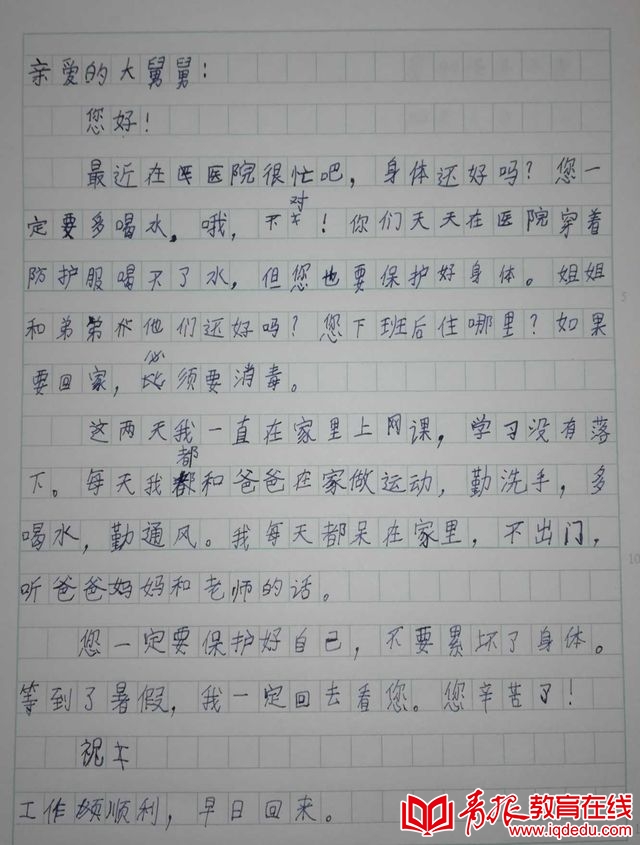 亲爱的大舅舅：
您好！
最近在医院很忙吧，身体还好吗？您一
定要多喝水。哦，不对！你们天天在医院穿着
防护服喝不了水，但您也要保护好身体。姐姐
和弟弟他们还好吗？您下班后住哪里？如果
要回家，必须要消毒。
这两天我一直在家里上网课，学习没有落
下。每天我都和爸爸在家做运动，勤洗手，多
喝水，勤通风。我每天都呆在家里，不出门，
听爸爸妈妈和老师的话。
您一定要保护好自己，不要累坏了身体。
等到了暑假，我一定回去看您。您辛苦了！
祝
工作顺利，早日回来。
青报教育在线
www.iqdedu.com
5
10